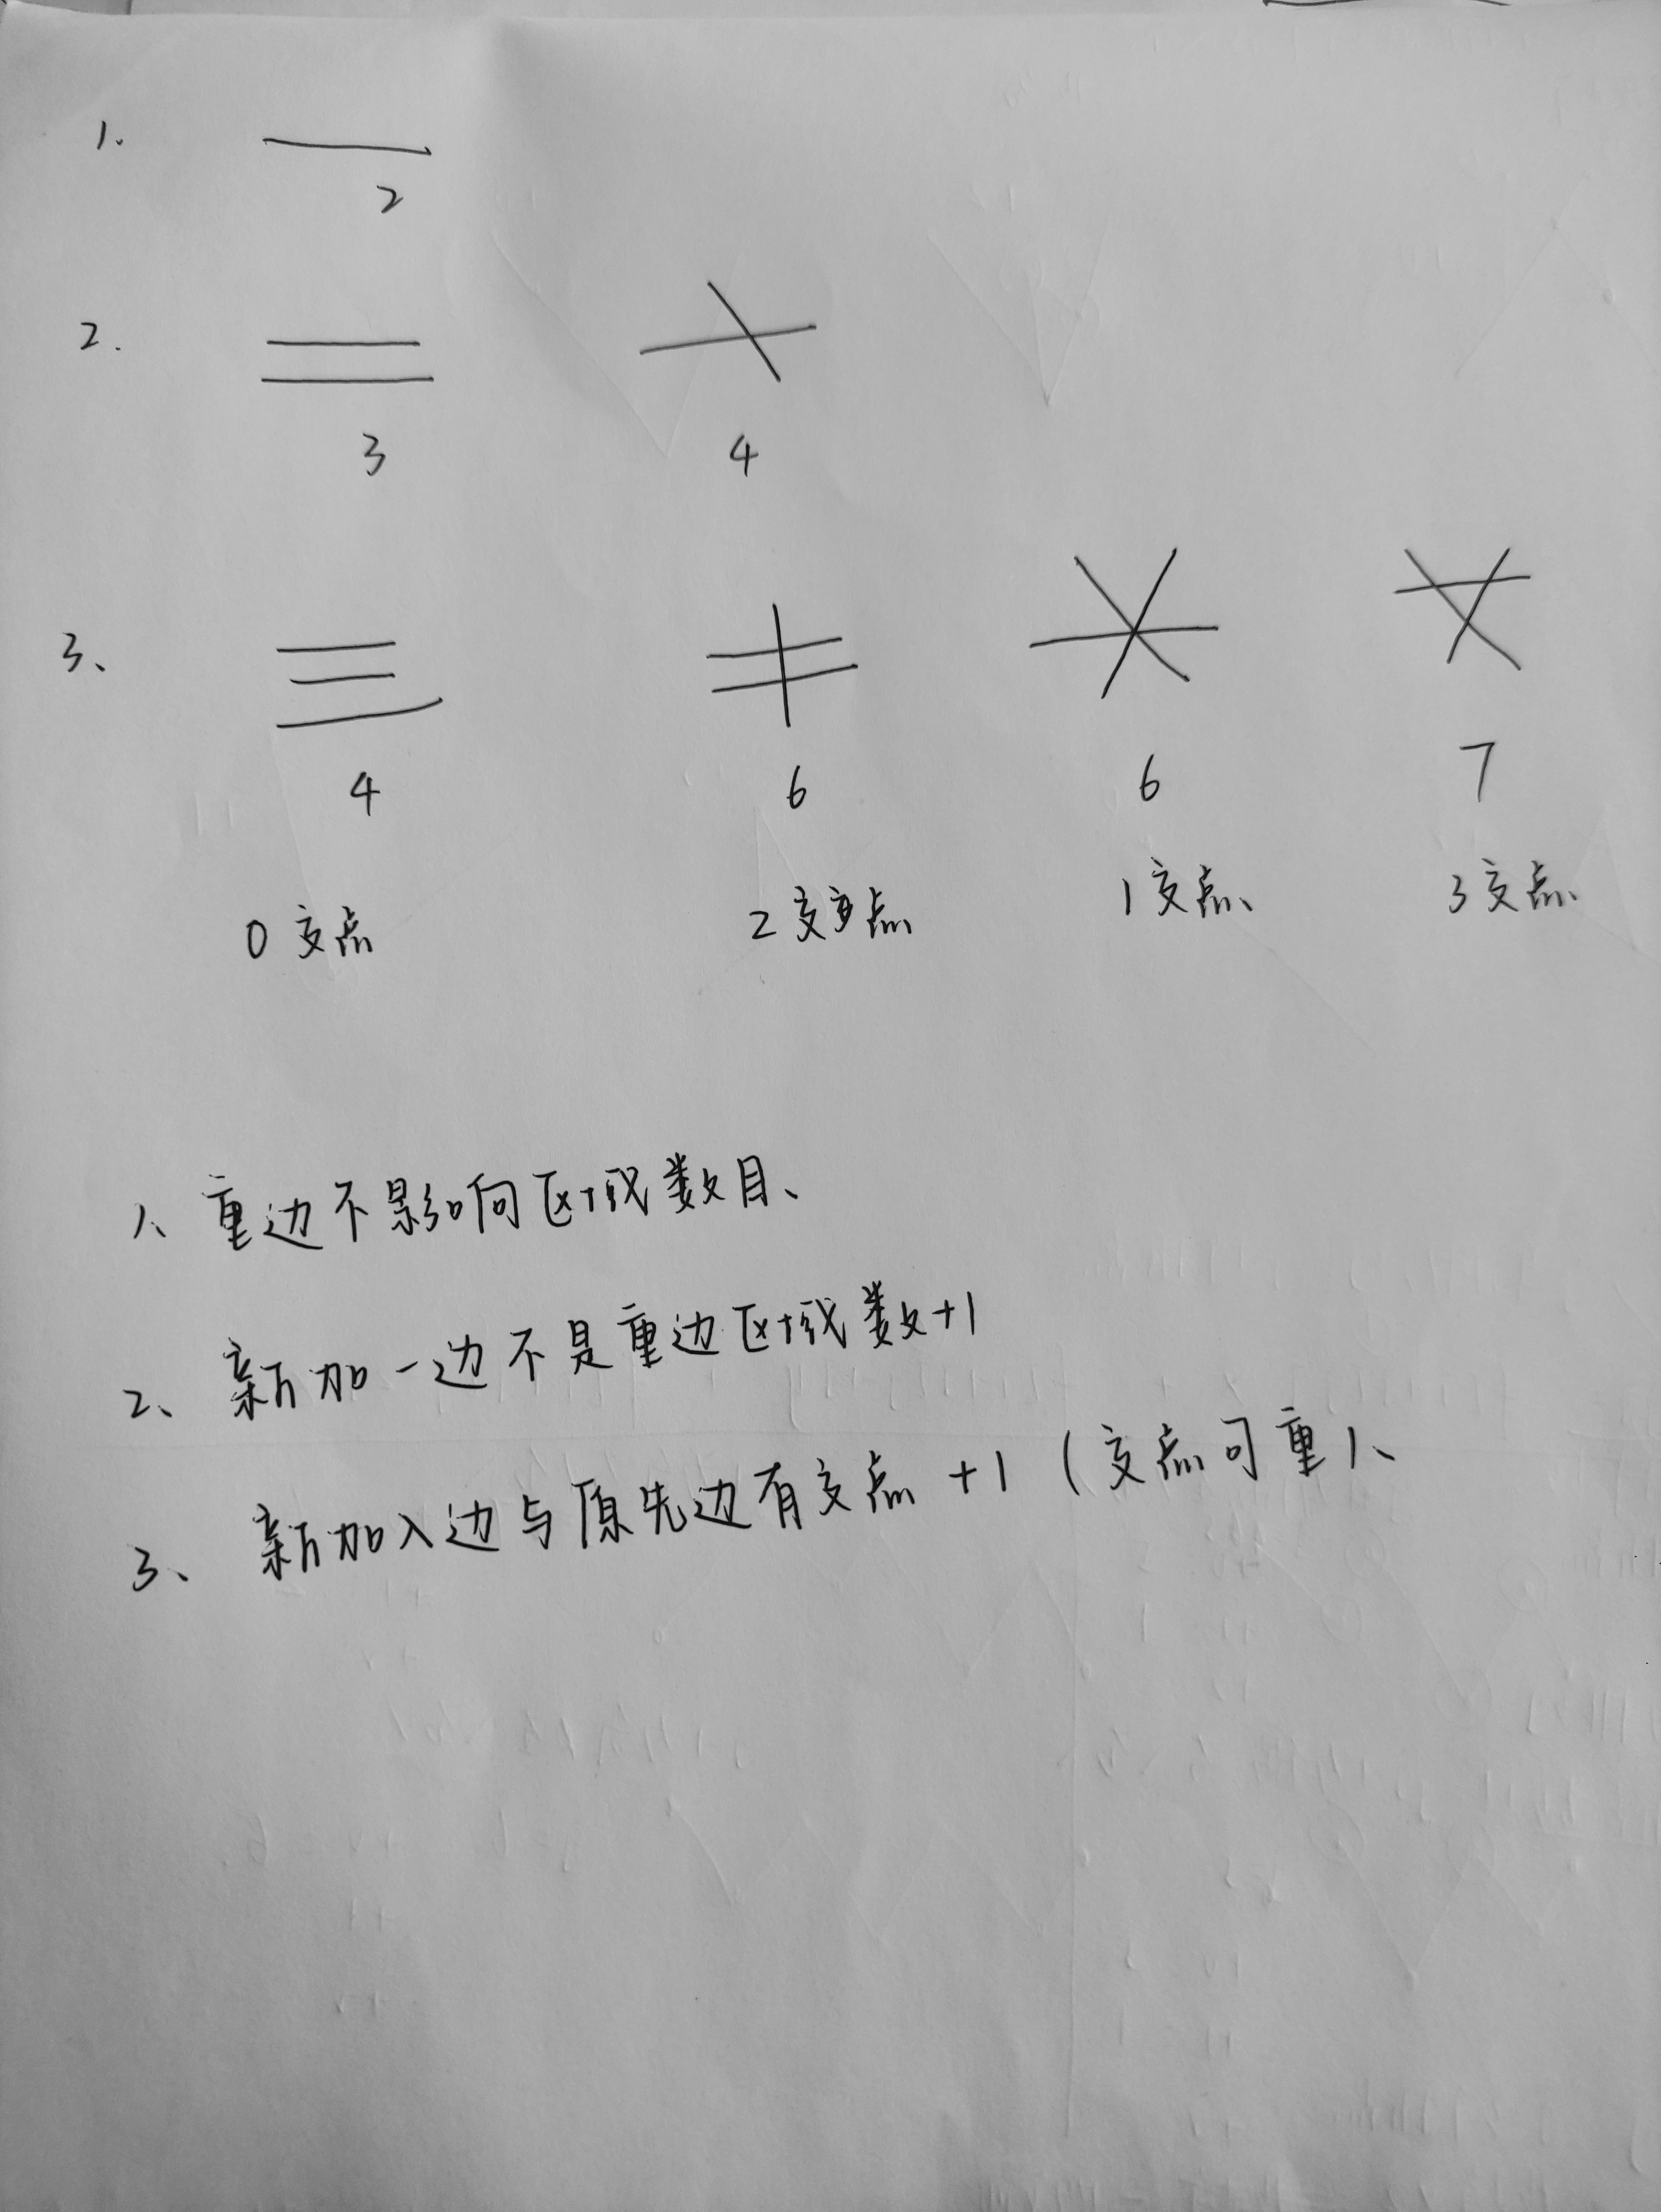 1.
2
2.
3 4
3、
4 6 6 7
0交点 2交点 1交点、 3交点、
1、重边不影响区域数目、
2、新加一边不是重边区域数+1
3、新加入边与原先边有交点 +1 (交点可重)、